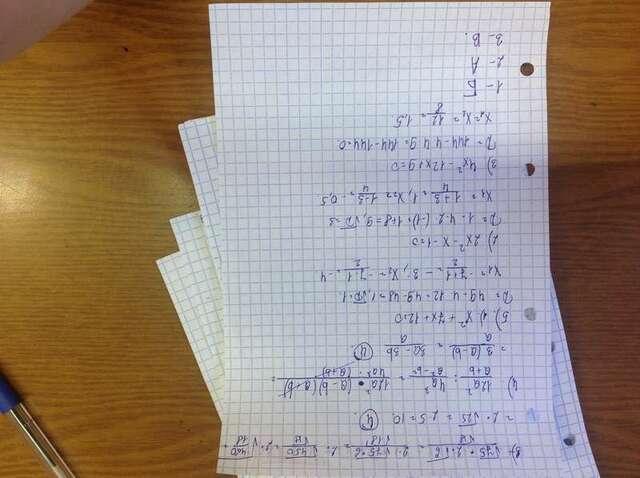 3) √75 · 2·√6 / √18 = 2·√75·6 / √18 = 2·√450 / √18 = 2·√450/18 =
= 2·√25 = 2·5 = 10. 4
4) 12a²/a+b : 4a³/a²-b² = 12a² · (a-b)(a+b) / 4a³ · (a+b) =
= 3(a-b)/a = 3a-3b/a 4.
5). 1) x² + 7x + 12 = 0
D = 49 - 4·12 = 49 - 48 = 1, √D = 1.
x₁ = -7+1/2 = -3, x₂ = -7-1/2 = -4
2) 2x² - x - 1 = 0
D = 1 - 4·2·(-1) = 1+8 = 9, √D = 3
x₁ = 1+3/4 = 1, x₂ = 1-3/4 = -0,5.
3) 4x² - 12x + 9 = 0
D = 144 - 4·4·9 = 144 - 144 = 0
x₁ = x₂ = 12/8 = 1,5.
1 - Б
2 - А
3 - В.